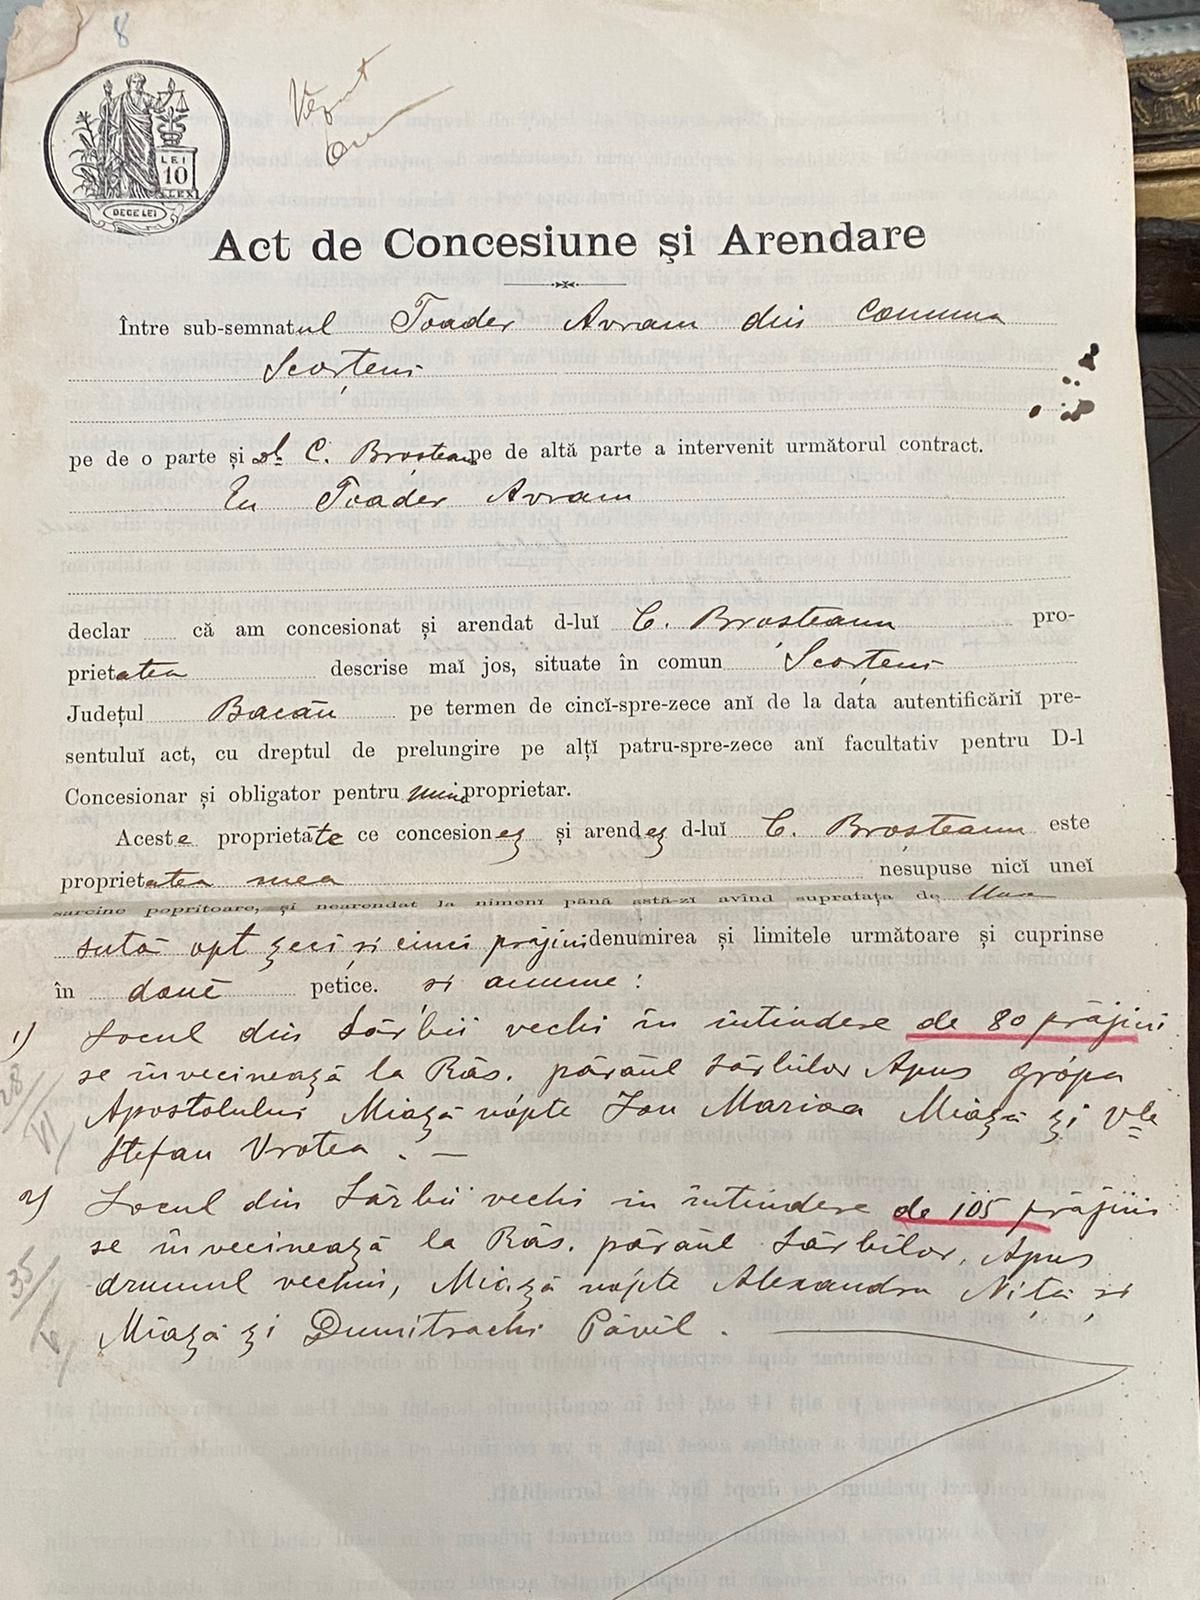 8
Văzut
LEI
10
LEX
DECE LEI
Act de Concesiune și Arendare
Între sub-semnatul Toader Avram din Comuna
Scorțeni
pe de o parte și dl C. Broșteanu pe de altă parte a intervenit următorul contract.
Eu Toader Avram
declar că am concesionat și arendat d-luĭ C. Broșteanu pro-
prietatea descrise maĭ jos, situate în comun Scorțeni
Județul Bacău pe termen de cincĭ-spre-zece anĭ de la data autentificăriĭ pre-
sentuluĭ act, cu dreptul de prelungire pe alțĭ patru-spre-zece anĭ facultativ pentru D-l
Concesionar și obligator pentru mine proprietar.
Aceste proprietăte ce concesionez și arendez d-luĭ C. Broșteanu este
proprietatea mea nesupuse nicĭ uneĭ
sarcine popritoare, și nearendat la nimenĭ până astă-zĭ avînd suprafața de Una
sută opt zeci și cinci prăjini denumirea și limitele următoare și cuprinse
în doue petice. si anume:
1) Locul din Sârbii vechi în întindere de 80 prăjini
se învecinează la Răs. părăul Sârbilor Apus grópa
Apostolului Miază nópte Ion Marina Miază zi
Stefan Vrotea. —
2) Locul din Sârbii vechi in întindere de 105 prăjini
se învecinează la Răs. părăul Sârbilor, Apus
drumul vechiu, Miază nópte Alexandru Niță și
Miază zi Dumitrachi Pavel. —
28/VI
35/